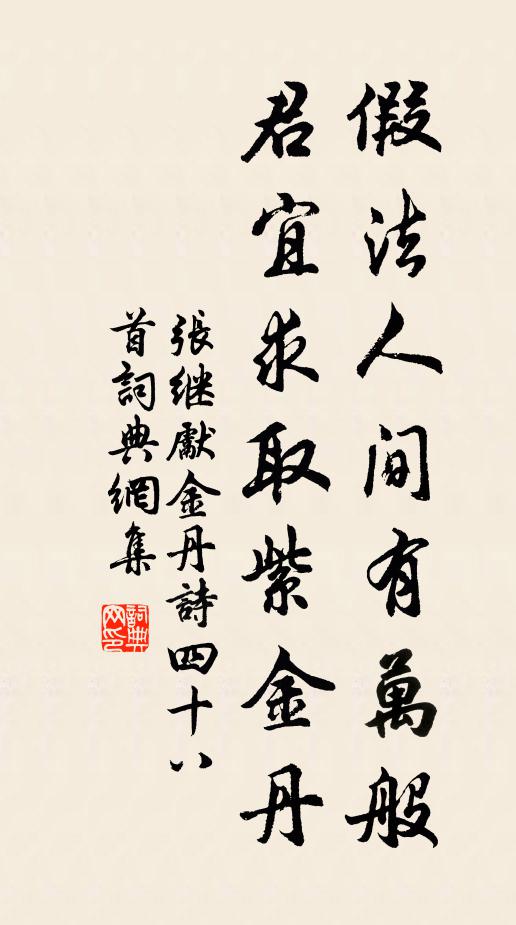 假法人間有萬般
君宜求取紫金丹
張継獻金丹詩四十八
首詞典網集
詞典網印